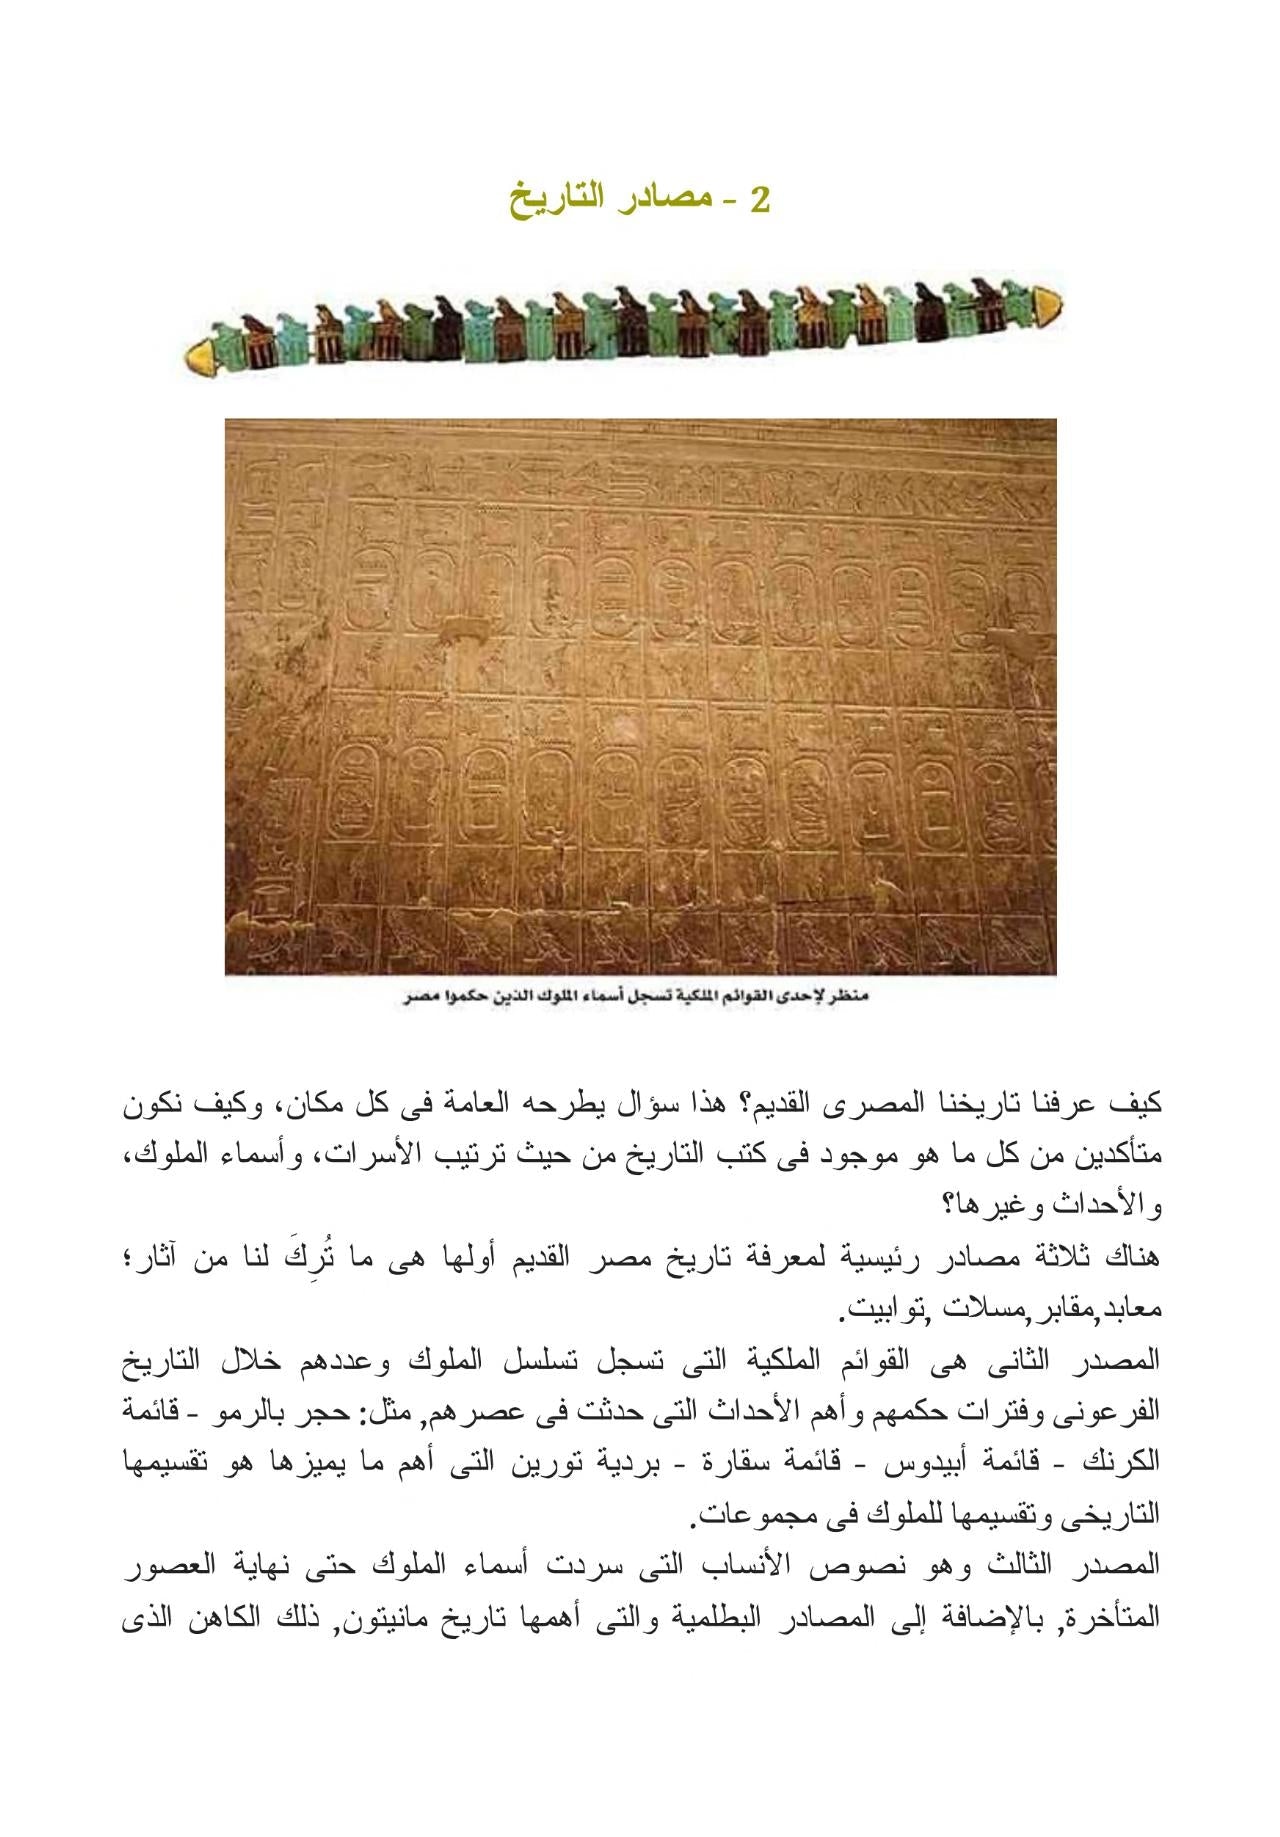 2 - مصادر التاريخ
منظر لإحدى القوائم الملكية تسجل أسماء الملوك الذين حكموا مصر
كيف عرفنا تاريخنا المصرى القديم؟ هذا سؤال يطرحه العامة فى كل مكان، وكيف نكون
متأكدين من كل ما هو موجود فى كتب التاريخ من حيث ترتيب الأسرات، وأسماء الملوك،
والأحداث وغيرها؟
هناك ثلاثة مصادر رئيسية لمعرفة تاريخ مصر القديم أولها هى ما تُرِكَ لنا من آثار؛
معابد,مقابر,مسلات ,توابيت.
المصدر الثانى هى القوائم الملكية التى تسجل تسلسل الملوك وعددهم خلال التاريخ
الفرعونى وفترات حكمهم وأهم الأحداث التى حدثت فى عصرهم, مثل: حجر بالرمو - قائمة
الكرنك - قائمة أبيدوس - قائمة سقارة - بردية تورين التى أهم ما يميزها هو تقسيمها
التاريخى وتقسيمها للملوك فى مجموعات.
المصدر الثالث وهو نصوص الأنساب التى سردت أسماء الملوك حتى نهاية العصور
المتأخرة, بالإضافة إلى المصادر البطلمية والتى أهمها تاريخ مانيتون, ذلك الكاهن الذى